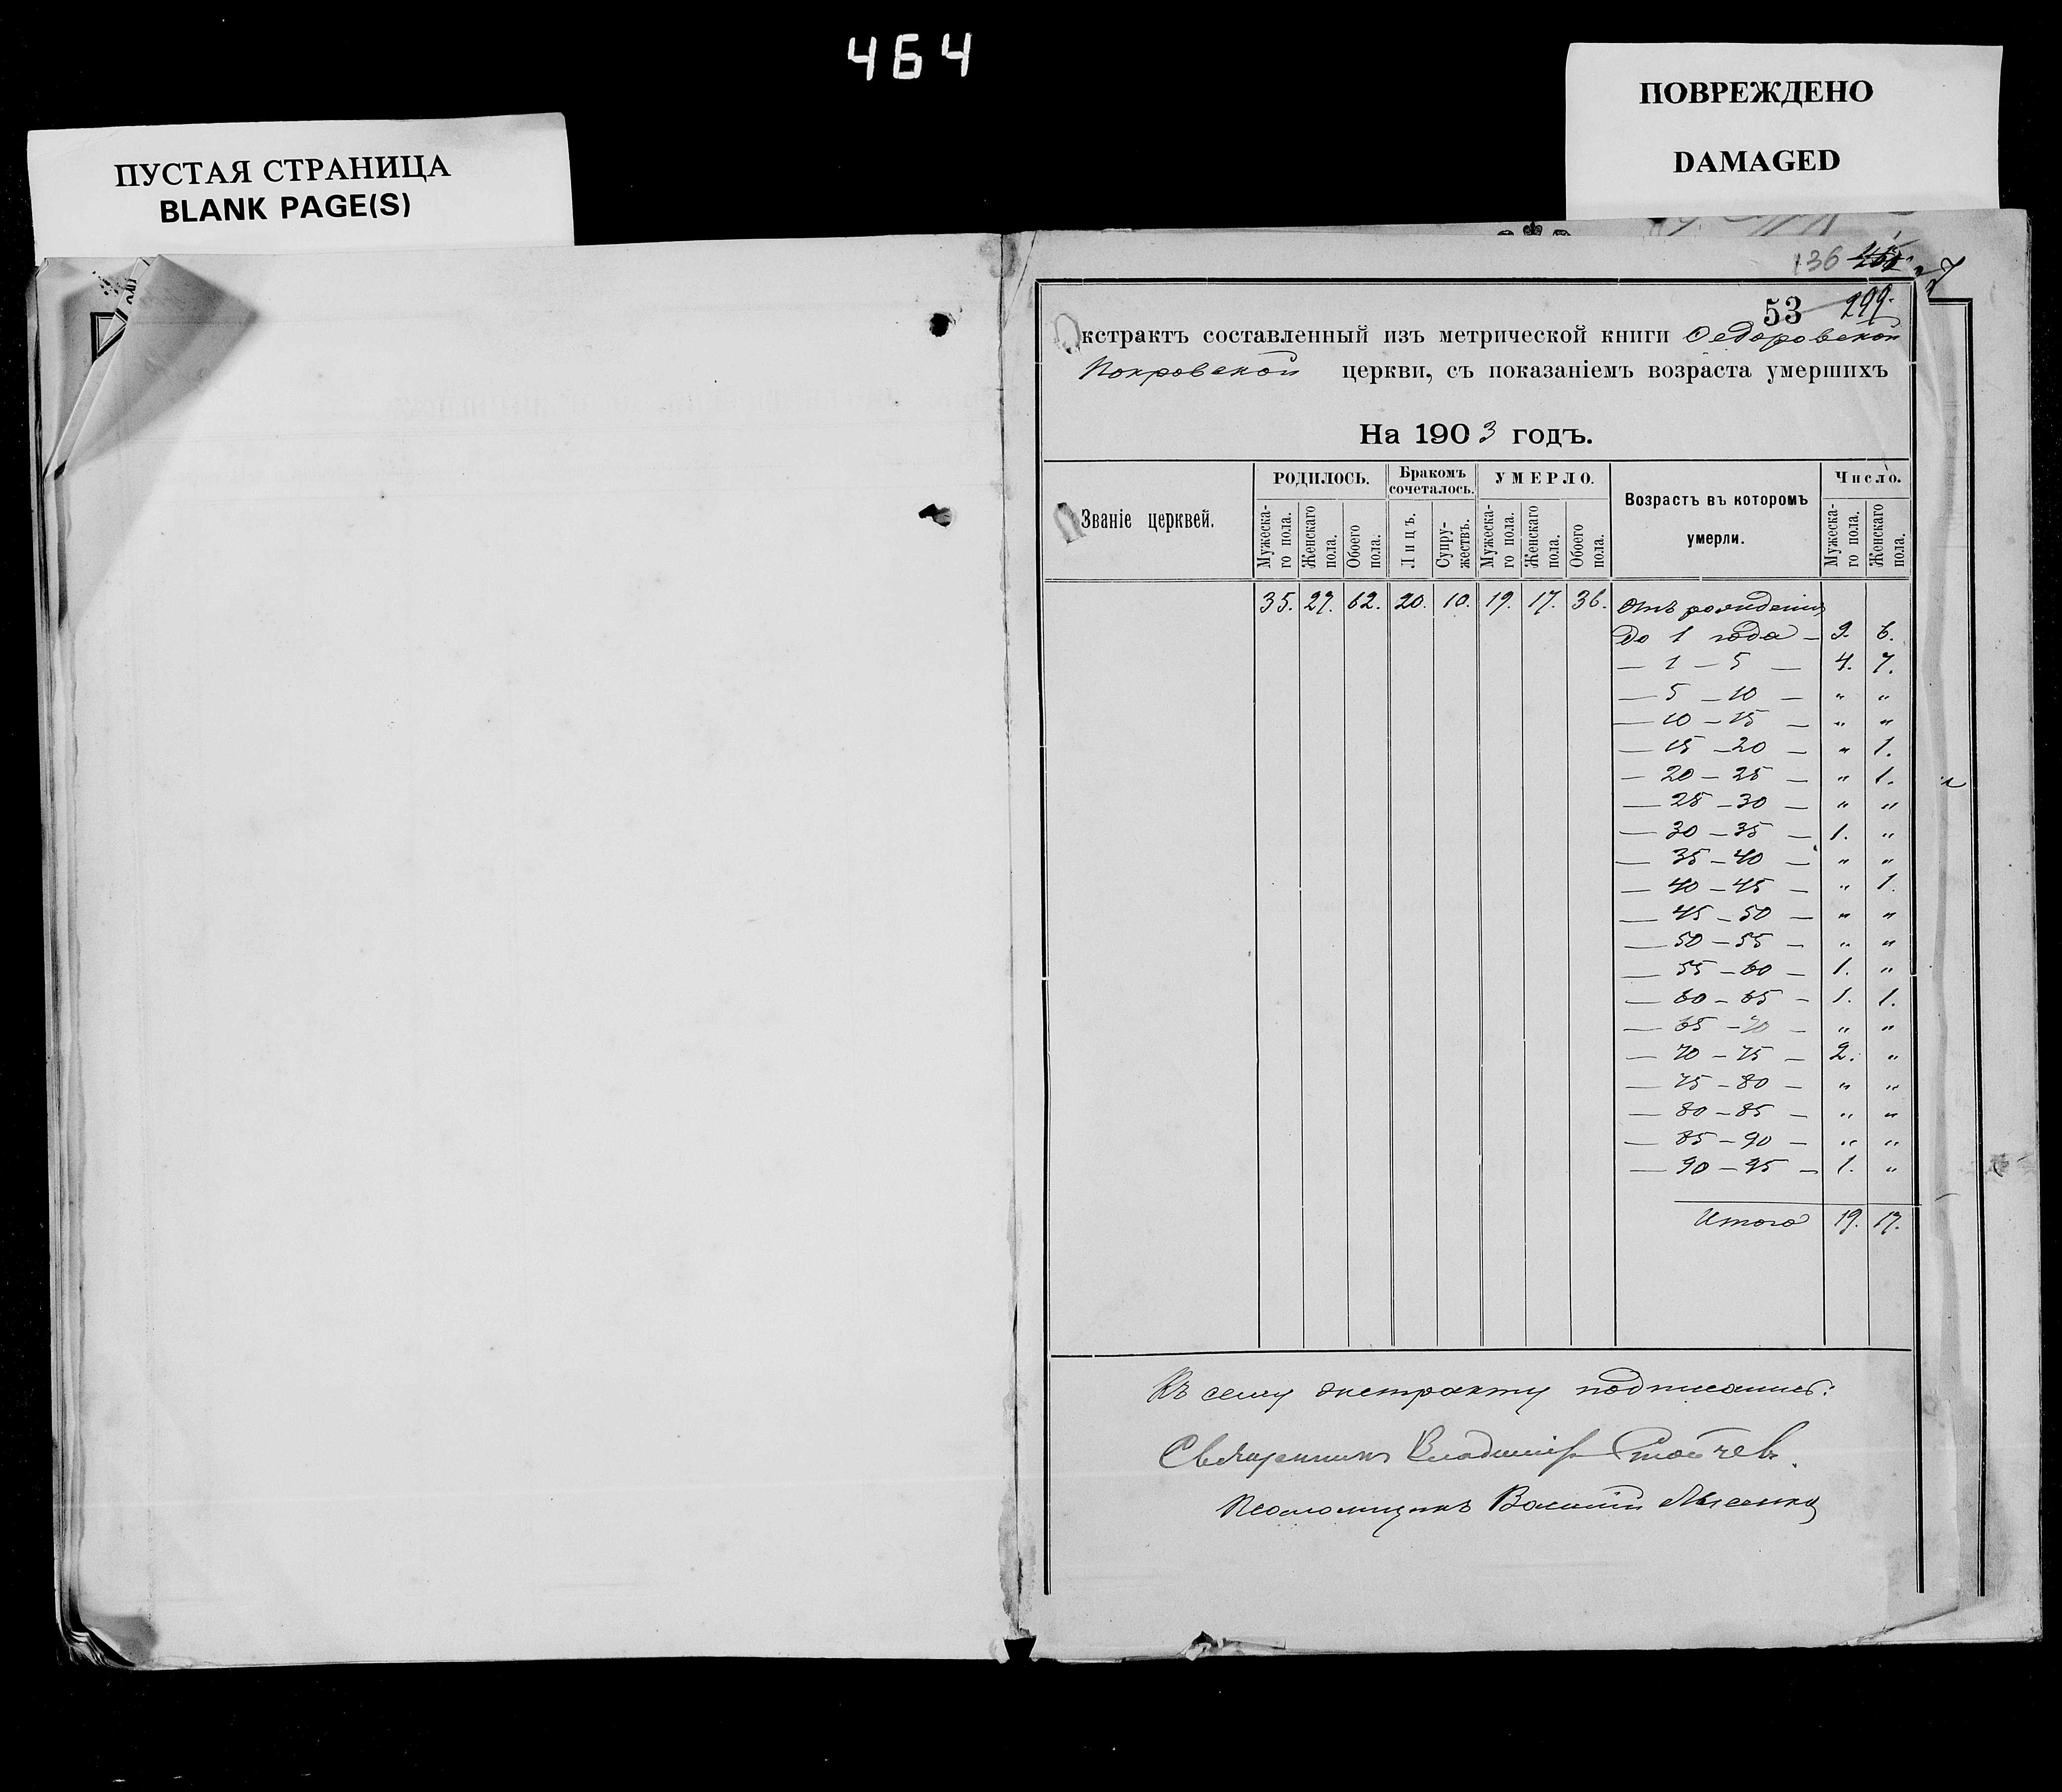 464
ПУСТАЯ СТРАНИЦА
BLANK PAGE(S)
ПОВРЕЖДЕНО
DAMAGED
136
53 299.
Экстрактъ составленный изъ метрической книги Ѳедоровской
Покровской церкви, съ показаніемъ возраста умершихъ
На 1903 годъ.
Званіе церквей. РОДИЛОСЬ. Бракомъ сочеталось. УМЕРЛО. Возрастъ въ которомъ умерли. Число.
Мужеска-го пола. Женскаго пола. Обоего пола. Лицъ. Супру-жествъ. Мужеска-го пола. Женскаго пола. Обоего пола. Мужеска-го пола. Женскаго пола.
35. 27. 62. 20. 10. 19. 17. 36. Отъ рожденія
до 1 года — 9. 6.
— 1 — 5 — 4. 7.
— 5 — 10 — " "
— 10 — 15 — " "
— 15 — 20 — " 1.
— 20 — 25 — " 1.
— 25 — 30 — " "
— 30 — 35 — 1. "
— 35 — 40 — " "
— 40 — 45 — " 1.
— 45 — 50 — " "
— 50 — 55 — " "
— 55 — 60 — 1. "
— 60 — 65 — 1. 1.
— 65 — 70 — " "
— 70 — 75 — 2. "
— 75 — 80 — " "
— 80 — 85 — " "
— 85 — 90 — " "
— 90 — 95 — 1. "
Итого 19. 17.
Къ сему экстракту подписались:
Священникъ Владиміръ Стойчевъ.
Псаломщикъ Василій Лысенко